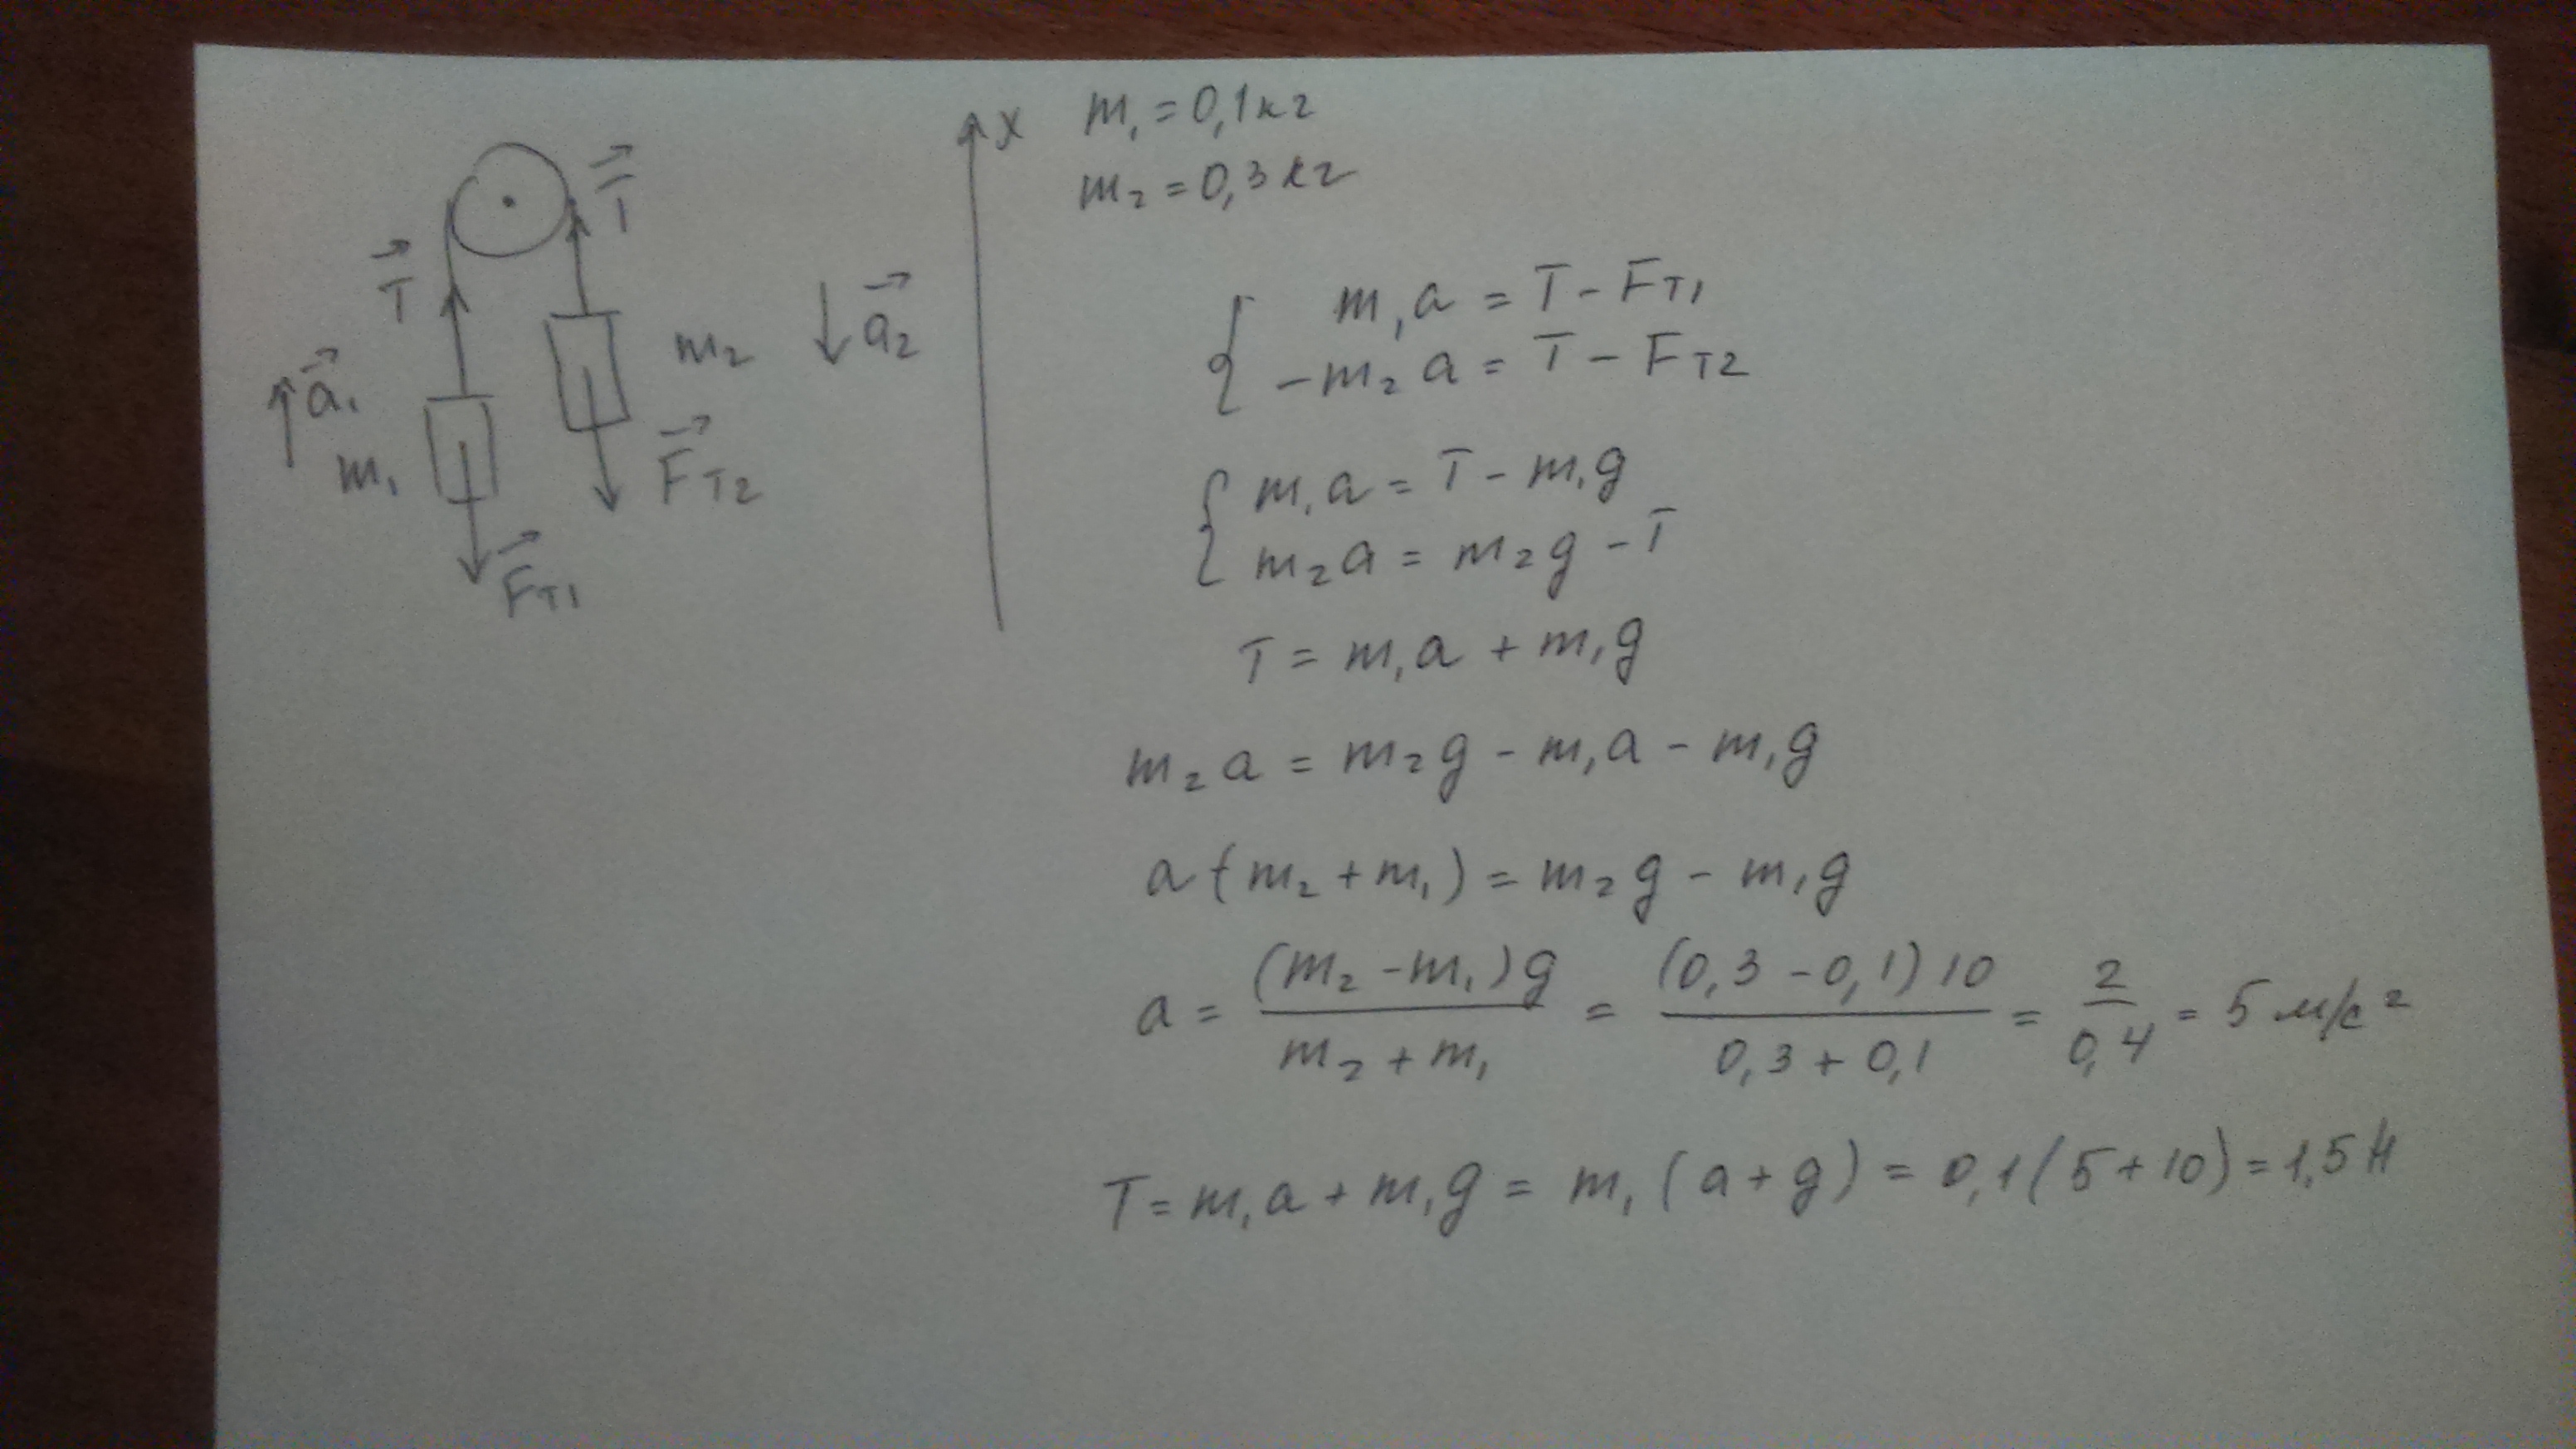 T⃗
T⃗
a⃗₁
m₁
F⃗т1
m₂
F⃗т2
a⃗₂
x
m₁ = 0,1 кг
m₂ = 0,3 кг
m₁a = T - Fт1
-m₂a = T - Fт2
m₁a = T - m₁g
m₂a = m₂g - T
T = m₁a + m₁g
m₂a = m₂g - m₁a - m₁g
a(m₂ + m₁) = m₂g - m₁g
a = (m₂ - m₁)g / (m₂ + m₁) = (0,3 - 0,1)10 / (0,3 + 0,1) = 2 / 0,4 = 5 м/с²
T = m₁a + m₁g = m₁(a + g) = 0,1(5 + 10) = 1,5 Н